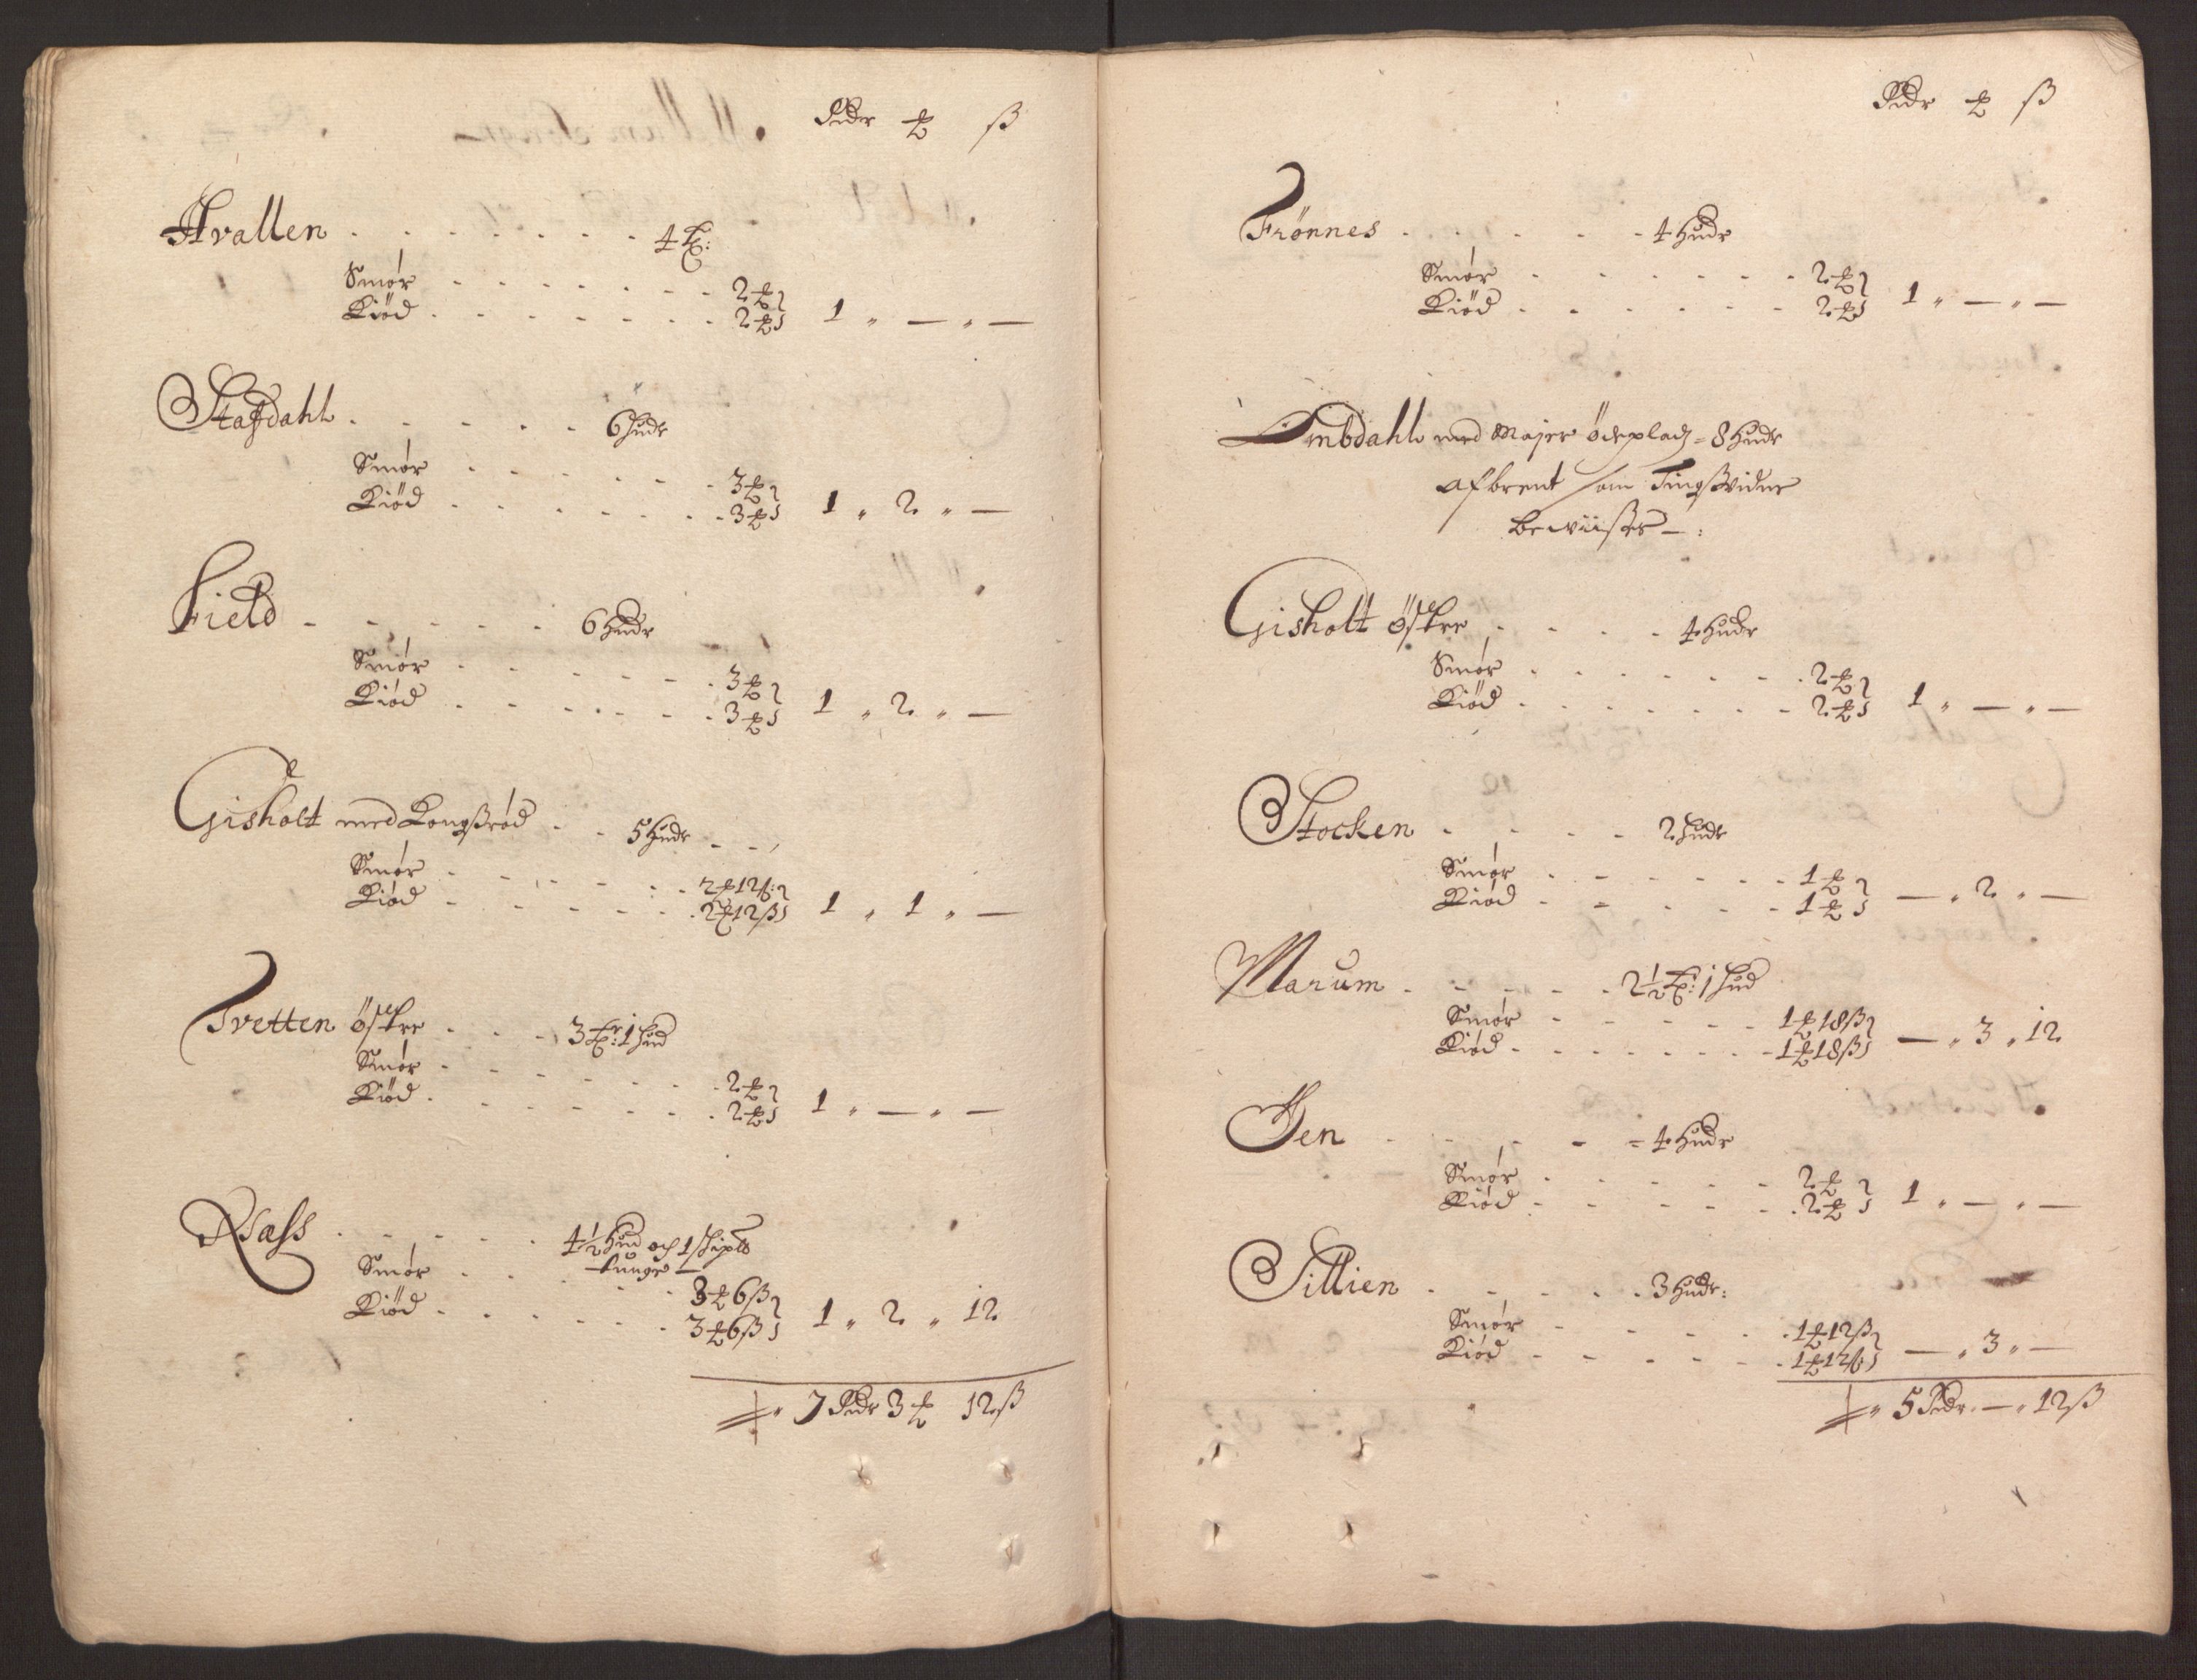 Rdr ℔ ß
Hvallen . . . . . . . 4 tℓ:
Smør . . . . . . . 2 ℔
Kiöd . . . . . . . 2 ℔ 1 „ — „ —
Stafdahl . . . . . 6 Hudr
Smør . . . . . . 3 ℔
Kiöd . . . . . . . 3 ℔ 1 „ 2 „ —
Field - . . . . . 6 Hudr
Smør . . . . . . 3 ℔
Kiöd . . . . . . . 3 ℔ 1 „ 2 „ —
Gisholt med Kongßrød . . 5 Hudr - -
Smør . . . . . . 2 ℔ 12 ß:
Kiöd . . . . . . 2 ℔ 12 ß 1 „ 1 „ —
Tvetten östre . . . 3 tℓr: 1 hud
Smør . . . . . . . 2 ℔
Kiöd . . . . . . . 2 ℔ 1 „ — „ —
Aass . . . . . 4½ Hud och 1 skipℓd
tunge
Smør . . . . . 3 ℔ 6 ß
Kiöd . . . . . . 3 ℔ 6 ß 1 „ 2 „ 12
„ 7 Rdr 3 ℔ 12 ß
Rdr ℔ ß
Trönnes . . . . . - 4 Hudr
Smør . . . . . . 2 ℔
Kiöd . . . . . . 2 ℔ 1 „ — „ —
Ombdahl med Majer ödeplads = 8 Hudr
afbrent som Tingßvidne
bewiißer — :
Gisholt östre . . . . 4 Hudr
Smør . . . . . . . 2 ℔
Kiöd . . . . . . . 2 ℔ 1 „ — „ —
Stocken . . . . 2 Hudr
Smør . . . . . . 1 ℔
Kiöd . . . . . 1 ℔ — „ 2 „ —
Marum . . . . . 2½ tℓ: 1 hud
Smør . . . . . 1 ℔ 18 ß
Kiöd . . . . . . . 1 ℔ 18 ß — „ 3 „ 12
Jen . . . . = 4 Hudr
Smør . . . . . 2 ℔
Kiöd . . . . . . 2 ℔ 1 „ — „ —
Sillien . . . . . 3 Hudr:
Smør . . . . 1 ℔ 12 ß
Kiöd . . . . . . 1 ℔ 12 ß — „ 3 „ —
„ 5 Rdr. — „ 12 ß